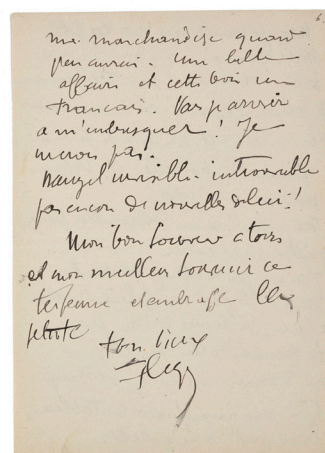 6
ma marchandise quand
j'en aurai. Une belle
affaire et cette fois un
Français. Vas-p arriver
à m'embusquer ! Je
ne crois pas.
invisible - introuvable
pas encore de nouvelles de lui !
Mon bon souvenir à tous
et mon meilleur souvenir à
ta femme et embrasse les
petite
ton vieux